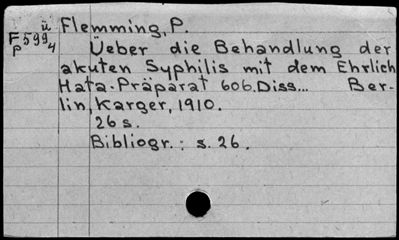 ü Flemming, P.
F 599 4
p
Ueber die Behandlung der
akuten Syphilis mit dem Ehrlich
Hata-Präparat 606. Diss... Ber-
lin, Karger, 1910.
26 s.
Bibliogr.: s. 26.